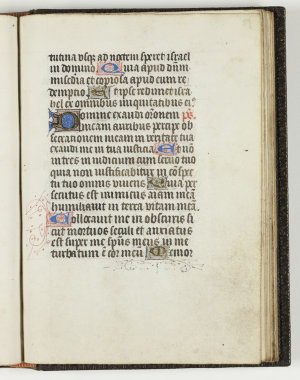 tutina usq; ad noctem speret israel
in domino Quia apud dum
misedia et copiosa apud eum re
demptio Et ipse redimet isra
hel ex omnibus iniquitatibus ei
Domine exaudi orōnem ps.
meam auribus percipe ob
secrationem meam in veritate tua
exaudi me in tua iusticia Et nō
intres in iudicium cum seruo tuo
quia non iustificabitur in cōspec
tu tuo omnis viuens Quia per
secutus est inimicus aiam meā
humiliauit in terra vitam meā
Collocauit me in obscuris si
cut mortuos seculi et anxiatus
est super me spūs meus in me
turbatum ē cor meū Memor